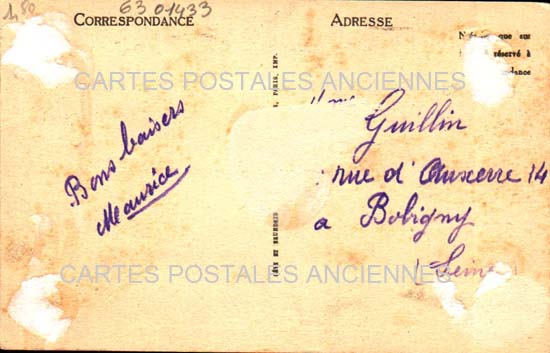 1,50
63 01433
CORRESPONDANCE
ADRESSE
que sur
réservé à
CARTES POSTALES ANCIENNES
PARIS, IMP.
Bons baisers
Maurice
Mme Guillin
rue d'Auxerre 14
a Bobigny
(Seine)
CARTES POSTALES ANCIENNES